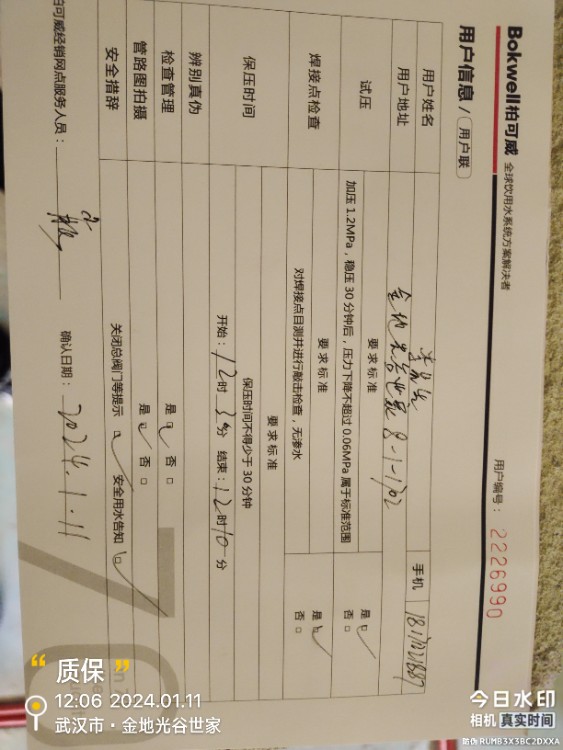 Bokwell柏可威 全球饮用水系统方案解决者
用户编号：2226990
用户信息 / 用户联
用户姓名 李先生 手机
用户地址 金地光谷世家 8-1-1702
试压 要求标准 是 否
加压 1.2MPa，稳压 30 分钟后，压力下降不超过 0.06MPa 属于标准范围
焊接点检查 要求标准 是 否
对焊接点目测并进行敲击检查，无渗水
保压时间 要求标准
保压时间不得少于 30 分钟
开始：12时 3分 结束：12时10分
辨别真伪
检查管理 是 否
管路图拍摄 是 否
安全措辞 关闭总阀门等提示 安全用水告知
柏可威经销网点服务人员： 确认日期：2024.1.11
“质保”
12:06 2024.01.11
武汉市·金地光谷世家
今日水印
相机 真实时间
防伪 RUMB3X3BC2DXXA